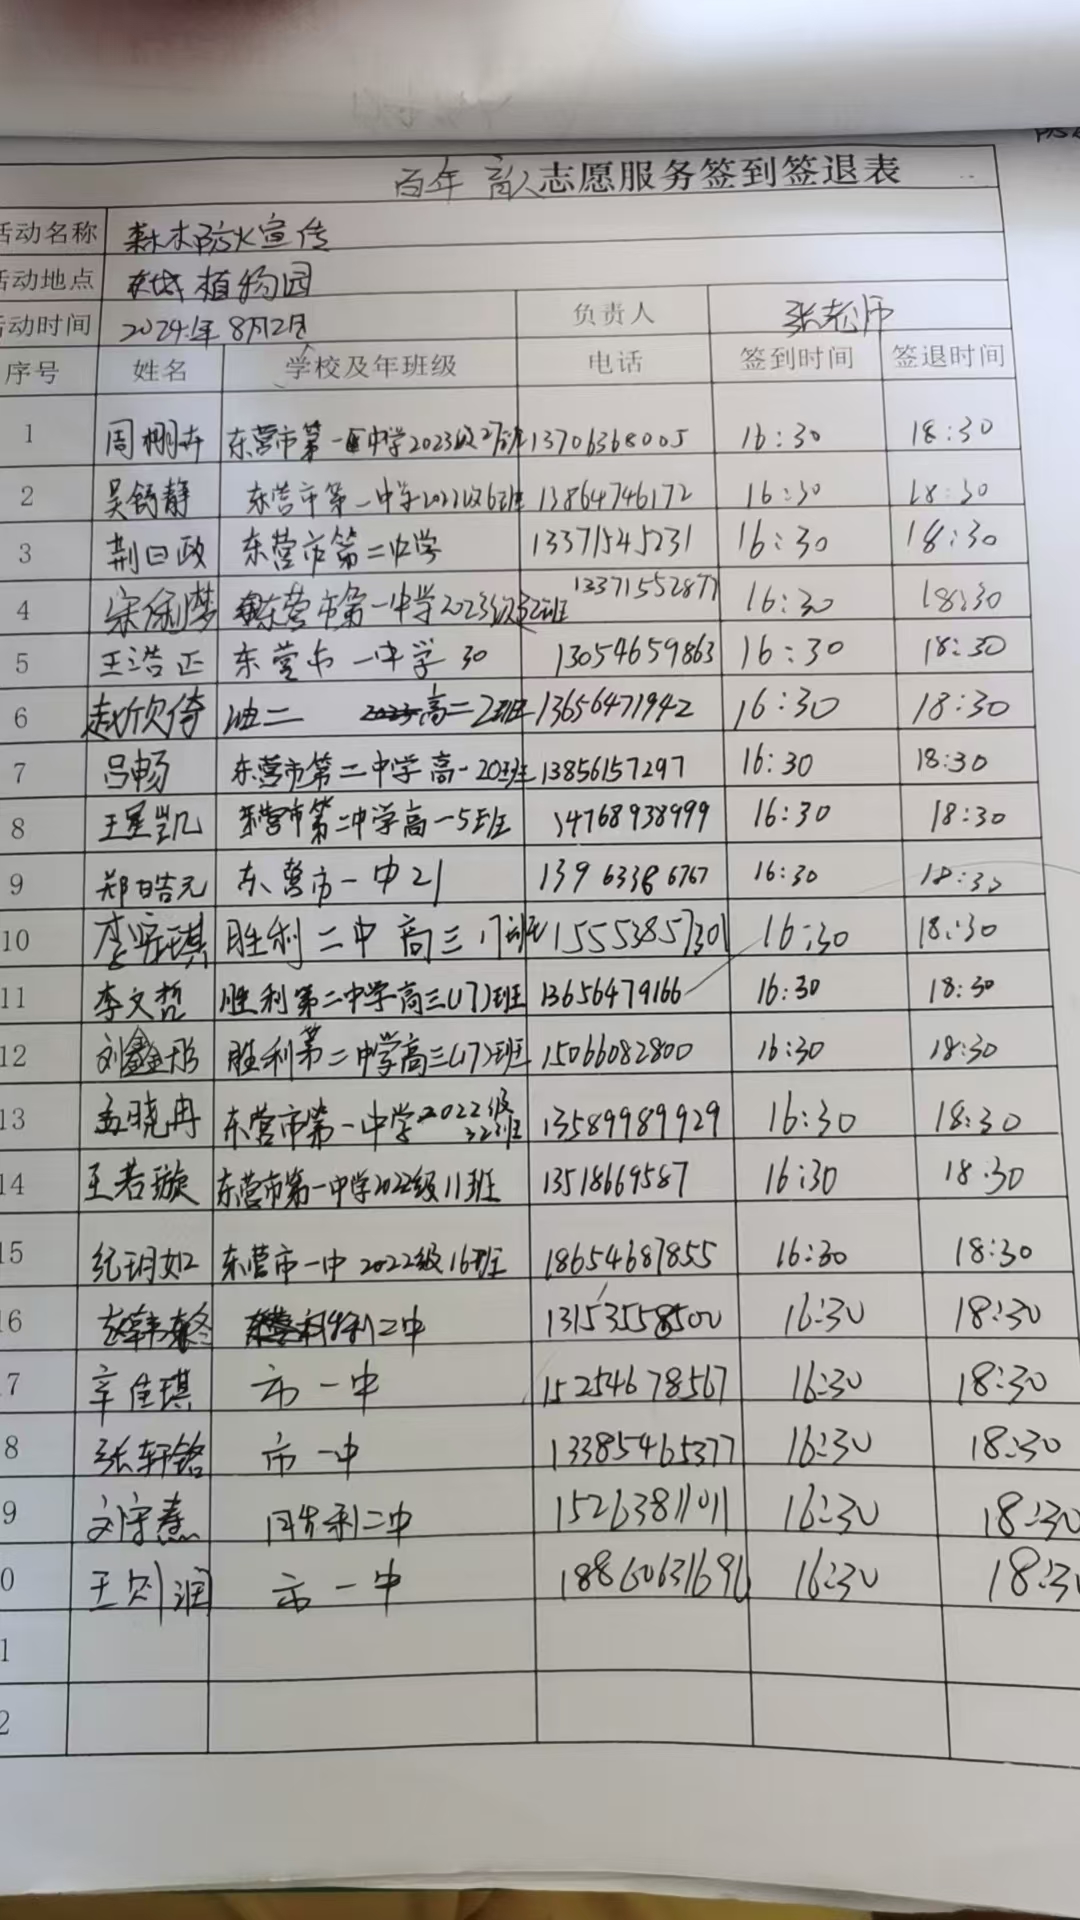 百年育人志愿服务签到签退表
活动名称 森木防火宣传
活动地点 植物园
活动时间 2024年8月12日 负责人 张老师
序号 姓名 学校及年班级 电话 签到时间 签退时间
1 周栅卉 东营市第一中学2023级27班 13706368005 16:30 18:30
2 吴舒静 东营市第一中学2022级6班 13864746172 16:30 18:30
3 荆曰政 东营市第二中学 13371545231 16:30 18:30
4 宋俐梦 东营市第一中学2023级 班 13371552877 16:30 18:30
5 王浩正 东营市一中学 30 13054659863 16:30 18:30
6 赵欣倚 油二 高二2班 13656471942 16:30 18:30
7 吕畅 东营市第二中学高一20班 13856157297 16:30 18:30
8 王星凯 东营市第二中学高一5班 14768938999 16:30 18:30
9 郑皓元 东营市一中21 13963386767 16:30 18:30
10 李 琪 胜利二中 高三17班 15553857301 16:30 18:30
11 李文哲 胜利第二中学高三(17)班 13656479166 16:30 18:30
12 刘鑫彤 胜利第二中学高三(17)班 15066082800 16:30 18:30
13 孟晓冉 东营市第一中学2022级32班 13589989929 16:30 18:30
14 王若璇 东营市第一中学2022级11班 13518669587 16:30 18:30
15 纪玥如 东营市一中 2022级16班 18654687855 16:30 18:30
6 赵韩 胜利二中 13153558500 16:30 18:30
7 辛佳琪 市一中 15254678567 16:30 18:30
8 张轩铭 市一中 13385465377 16:30 18:30
9 刘守熹 胜利二中 15263811011 16:30 18:30
0 王 润 市一中 18860631696 16:30 18:30
1
2